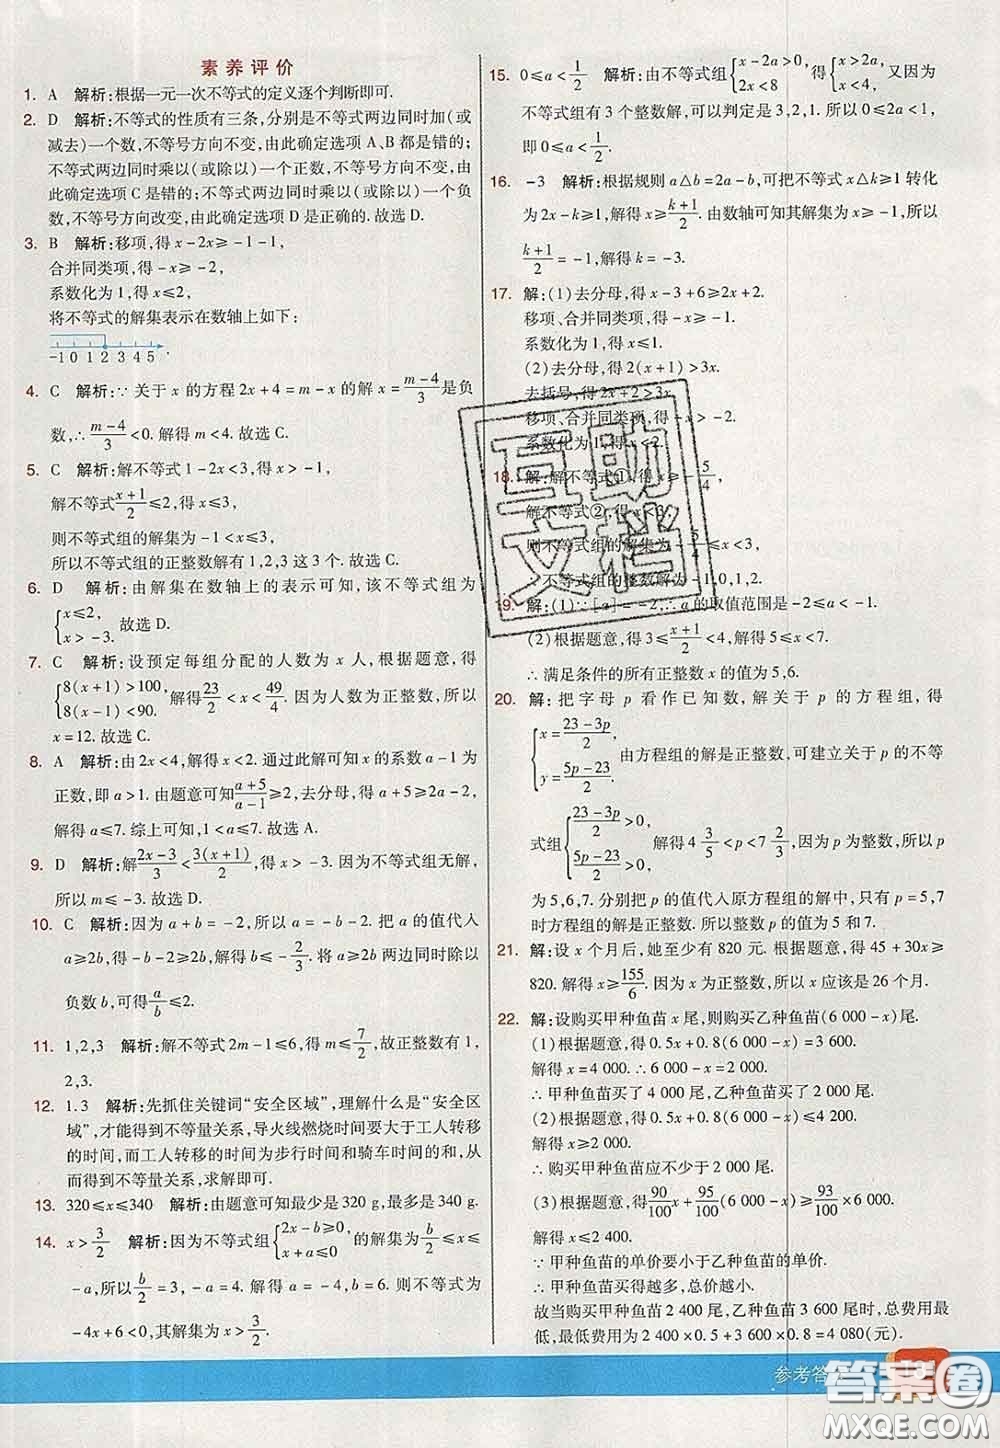 素养评价
1. A 解析:根据一元一次不等式的定义逐个判断即可.
2. D 解析:不等式的性质有三条,分别是不等式两边同时加(或
减去)一个数,不等号方向不变,由此确定选项A、B都是错的;
不等式两边同时乘以(或除以)一个正数,不等号方向不变,由
此确定选项C是错的;不等式两边同时乘以(或除以)一个负
数,不等号方向改变,由此确定选项D是正确的.故选D.
3. B 解析:移项,得x-2x≥-1-1,
合并同类项,得-x≥-2,
系数化为1,得x≤2,
将不等式的解集表示在数轴上如下:
-1 0 1 2 3 4 5 .
4. C 解析:∵关于x的方程2x+4=m-x的解x=(m-4)/3是负
数,∴(m-4)/3<0.解得m<4.故选C.
5. C 解析:解不等式1-2x<3,得x>-1,
解不等式(x+1)/2≤2,得x≤3,
则不等式组的解集为-1<x≤3,
所以不等式组的正整数解有1,2,3这3个.故选C.
6. D 解析:由解集在数轴上的表示可知,该不等式组为
{x≤2, x>-3. 故选D.
7. C 解析:设预定每组分配的人数为x人,根据题意,得
{8(x+1)>100, 8(x-1)<90. 解得23/2<x<49/4.因为人数为正整数,所以
x=12.故选C.
8. A 解析:由2x<4,解得x<2.通过此解可知x的系数a-1为
正数,即a>1.由题意可知(a+5)/(a-1)≥2,去分母,得a+5≥2a-2,
解得a≤7.综上可知,1<a≤7.故选A.
9. D 解析:解(2x-3)/3<3(x+1)/2,得x>-3.因为不等式组无解,
所以m≤-3.故选D.
10. C 解析:因为a+b=-2,所以a=-b-2.把a的值代入
a≥2b,得-b-2≥2b,解得b≤-2/3.将a≥2b两边同时除以
负数b,可得a/b≤2.
11. 1,2,3 解析:解不等式2m-1≤6,得m≤7/2,故正整数有1,
2,3.
12. 1.3 解析:先抓住关键词“安全区域”,理解什么是“安全区
域”,才能得到不等量关系,导火线燃烧时间要大于工人转移
的时间,而工人转移的时间为步行时间和骑车时间的和,从
而得到不等量关系,求解即可.
13. 320≤x≤340 解析:由题意可知最少是320 g,最多是340 g.
14. x>3/2 解析:因为不等式组{2x-b≥0, x+a≤0 的解集为b/2≤x≤
-a,所以b/2=3,-a=4.解得a=-4,b=6.则不等式为
-4x+6<0,其解集为x>3/2.
15. 0≤a<1/2 解析:由不等式组{x-2a>0, 2x<8 得{x>2a, x<4. 因为该
不等式组有3个整数解,可以判定是3,2,1.所以0≤2a<1,
即0≤a<1/2.
16. -3 解析:根据规则a△b=2a-b,可把不等式x△k≥1转化
为2x-k≥1,解得x≥(k+1)/2.由数轴可知其解集为x≥-1,所以
(k+1)/2=-1,解得k=-3.
17. 解:(1)去分母,得x-3+6≥2x+2.
移项、合并同类项,得-x≥-1.
系数化为1,得x≤1.
(2)去分母,得2(x+1)>3x.
去括号,得2x+2>3x.
移项、合并同类项,得-x>-2.
系数化为1,得x<2.
18. 解:解不等式①,得x≥-5/4,
解不等式②,得x<3,
则不等式组的解集为-5/4≤x<3,
∴不等式组的整数解为-1,0,1,2.
19. 解:(1)∵[a]=-2,∴a的取值范围是-2≤a<-1.
(2)根据题意,得3≤(x+1)/2<4,解得5≤x<7.
∴满足条件的所有正整数x的值为5,6.
20. 解:把字母p看作已知数,解关于p的方程组,得
{x=(23-3p)/2, y=(5p-23)/2. 由方程组的解是正整数,可建立关于p的不等
式组{(23-3p)/2>0, (5p-23)/2>0, 解得4 3/5<p<7 2/3.因为p为整数,所以p
为5,6,7.分别把p的值代入原方程组的解中,只有p=5,7
时方程组的解是正整数.所以整数p的值为5和7.
21. 解:设x个月后,她至少有820元.根据题意,得45+30x≥
820.解得x≥155/6.因为x为正整数,所以x应该是26个月.
22. 解:设购买甲种鱼苗x尾,则购买乙种鱼苗(6 000-x)尾.
(1)根据题意,得0.5x+0.8(6 000-x)=3 600.
解得x=4 000.∴6 000-x=2 000.
∴甲种鱼苗买了4 000尾,乙种鱼苗买了2 000尾.
(2)根据题意,得0.5x+0.8(6 000-x)≤4 200.
解得x≥2 000.
∴购买甲种鱼苗应不少于2 000尾.
(3)根据题意,得90/100x+95/100(6 000-x)≥93/100×6 000.
解得x≤2 400.
∵甲种鱼苗的单价要小于乙种鱼苗的单价.
∴甲种鱼苗买得越多,总价越小.
故当购买甲种鱼苗2 400尾,乙种鱼苗3 600尾时,总费用最
低,最低费用为2 400×0.5+3 600×0.8=4 080(元).
互助
文档
参考答
答案卷
MXQE.COM